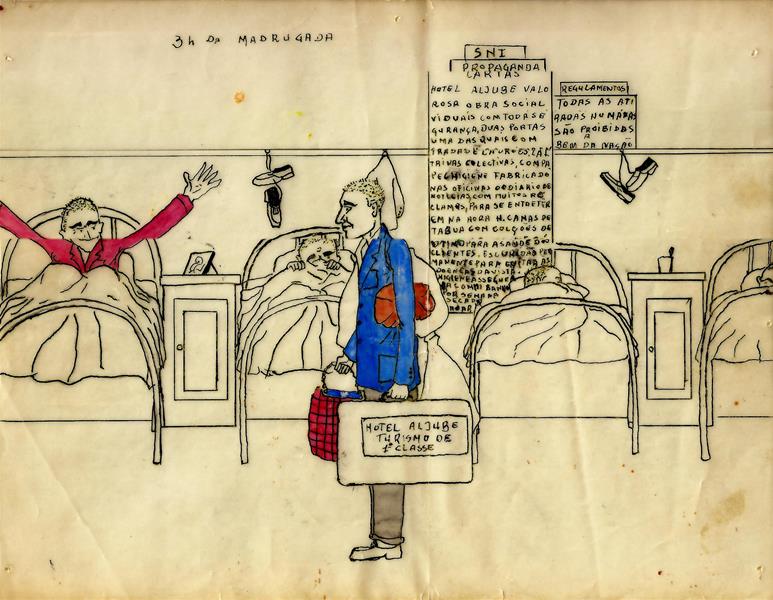 3h DA MADRUGADA
SNI
PROPAGANDA
CARTAS
HOTEL ALJUBE VALO
ROSA OBRA SOCIAL
VIDUAIS COM TODA SE
GURANÇA, DUAS PORTAS
UMA DAS QUAIS COM
TRINAS COLECTIVAS, COM PA
PEL HIGIENE FABRICADO
NAS OFICINAS DO DIARIO DE
NOTICIAS, COM MUITOS RE
CLAMOS, PARA SE ENTRETER
EM NA HORA H. CAMAS DE
TABUA COM COLÇÕES DE
PARA A SAUDE DOS
CLIENTES. ESCURIDÃO PER
MANENTE PARA EVITAR AS
DOENÇAS DA VISTA
REGULAMENTOS
TODAS AS ATI
HUMANAS
SÃO PROIBIDAS
A
BEM DA NAÇÃO
HOTEL ALJUBE
TURISMO DE
1ª CLASSE